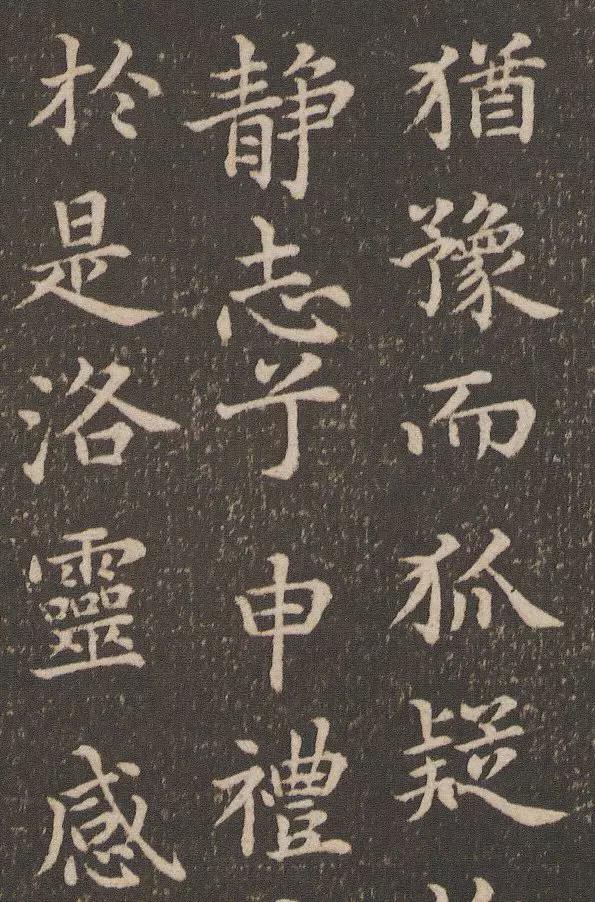 猶豫而狐疑
静志兮申禮
於是洛靈感